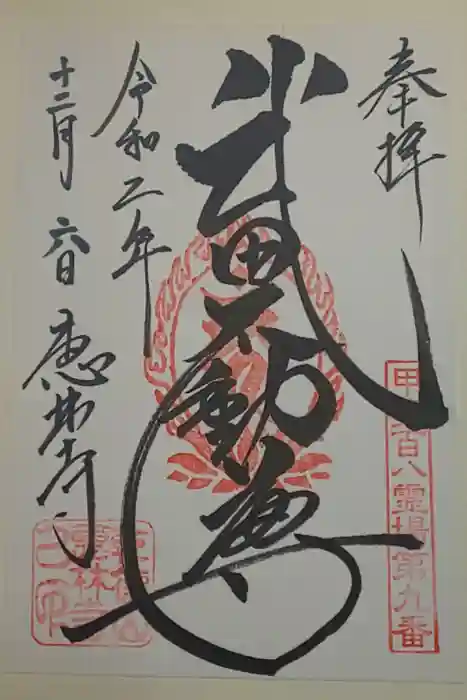 奉拝
甲斐百八霊場第九番
武田不動尊
令和二年
十二月六日
恵林寺